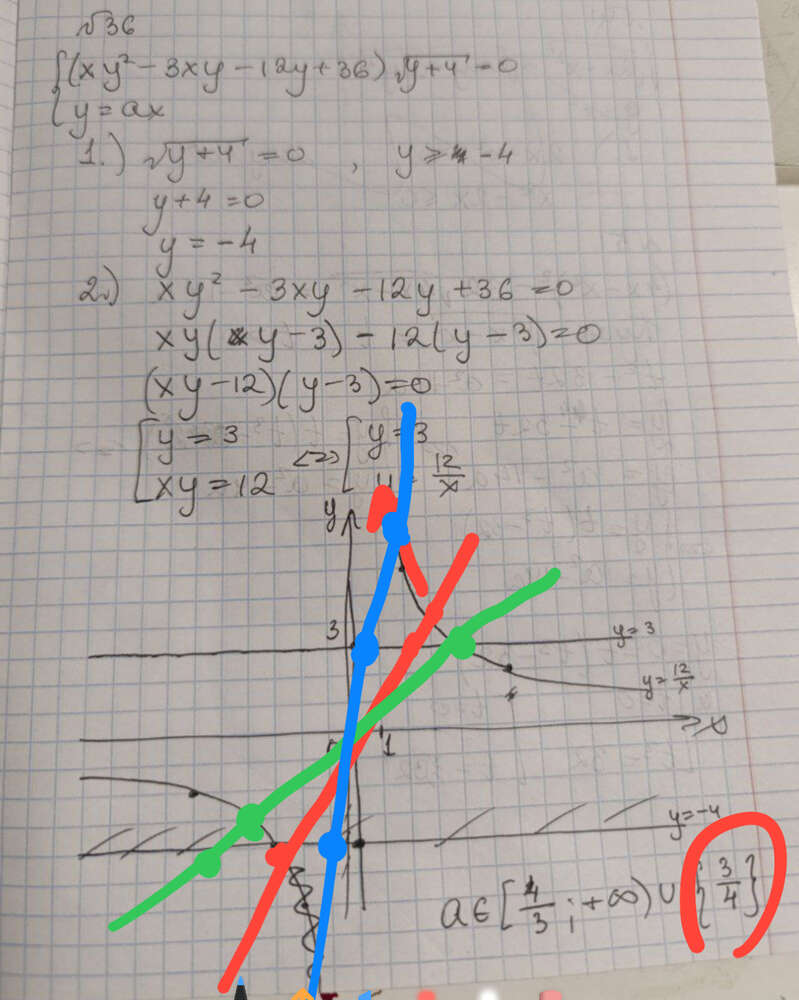 √36
{(xy² - 3xy - 12y + 36)√(y+4) = 0
{y = ax
1.) √(y+4) = 0 , y ⩾ -4
y + 4 = 0
y = -4
2.) xy² - 3xy - 12y + 36 = 0
xy(y - 3) - 12(y - 3) = 0
(xy - 12)(y - 3) = 0
[y = 3 <=> [y = 3
[xy = 12 [y = 12/x
y
3
y = 3
y = 12/x
1
x
y = -4
a ∈ [4/3; +∞) ∪ {3/4}